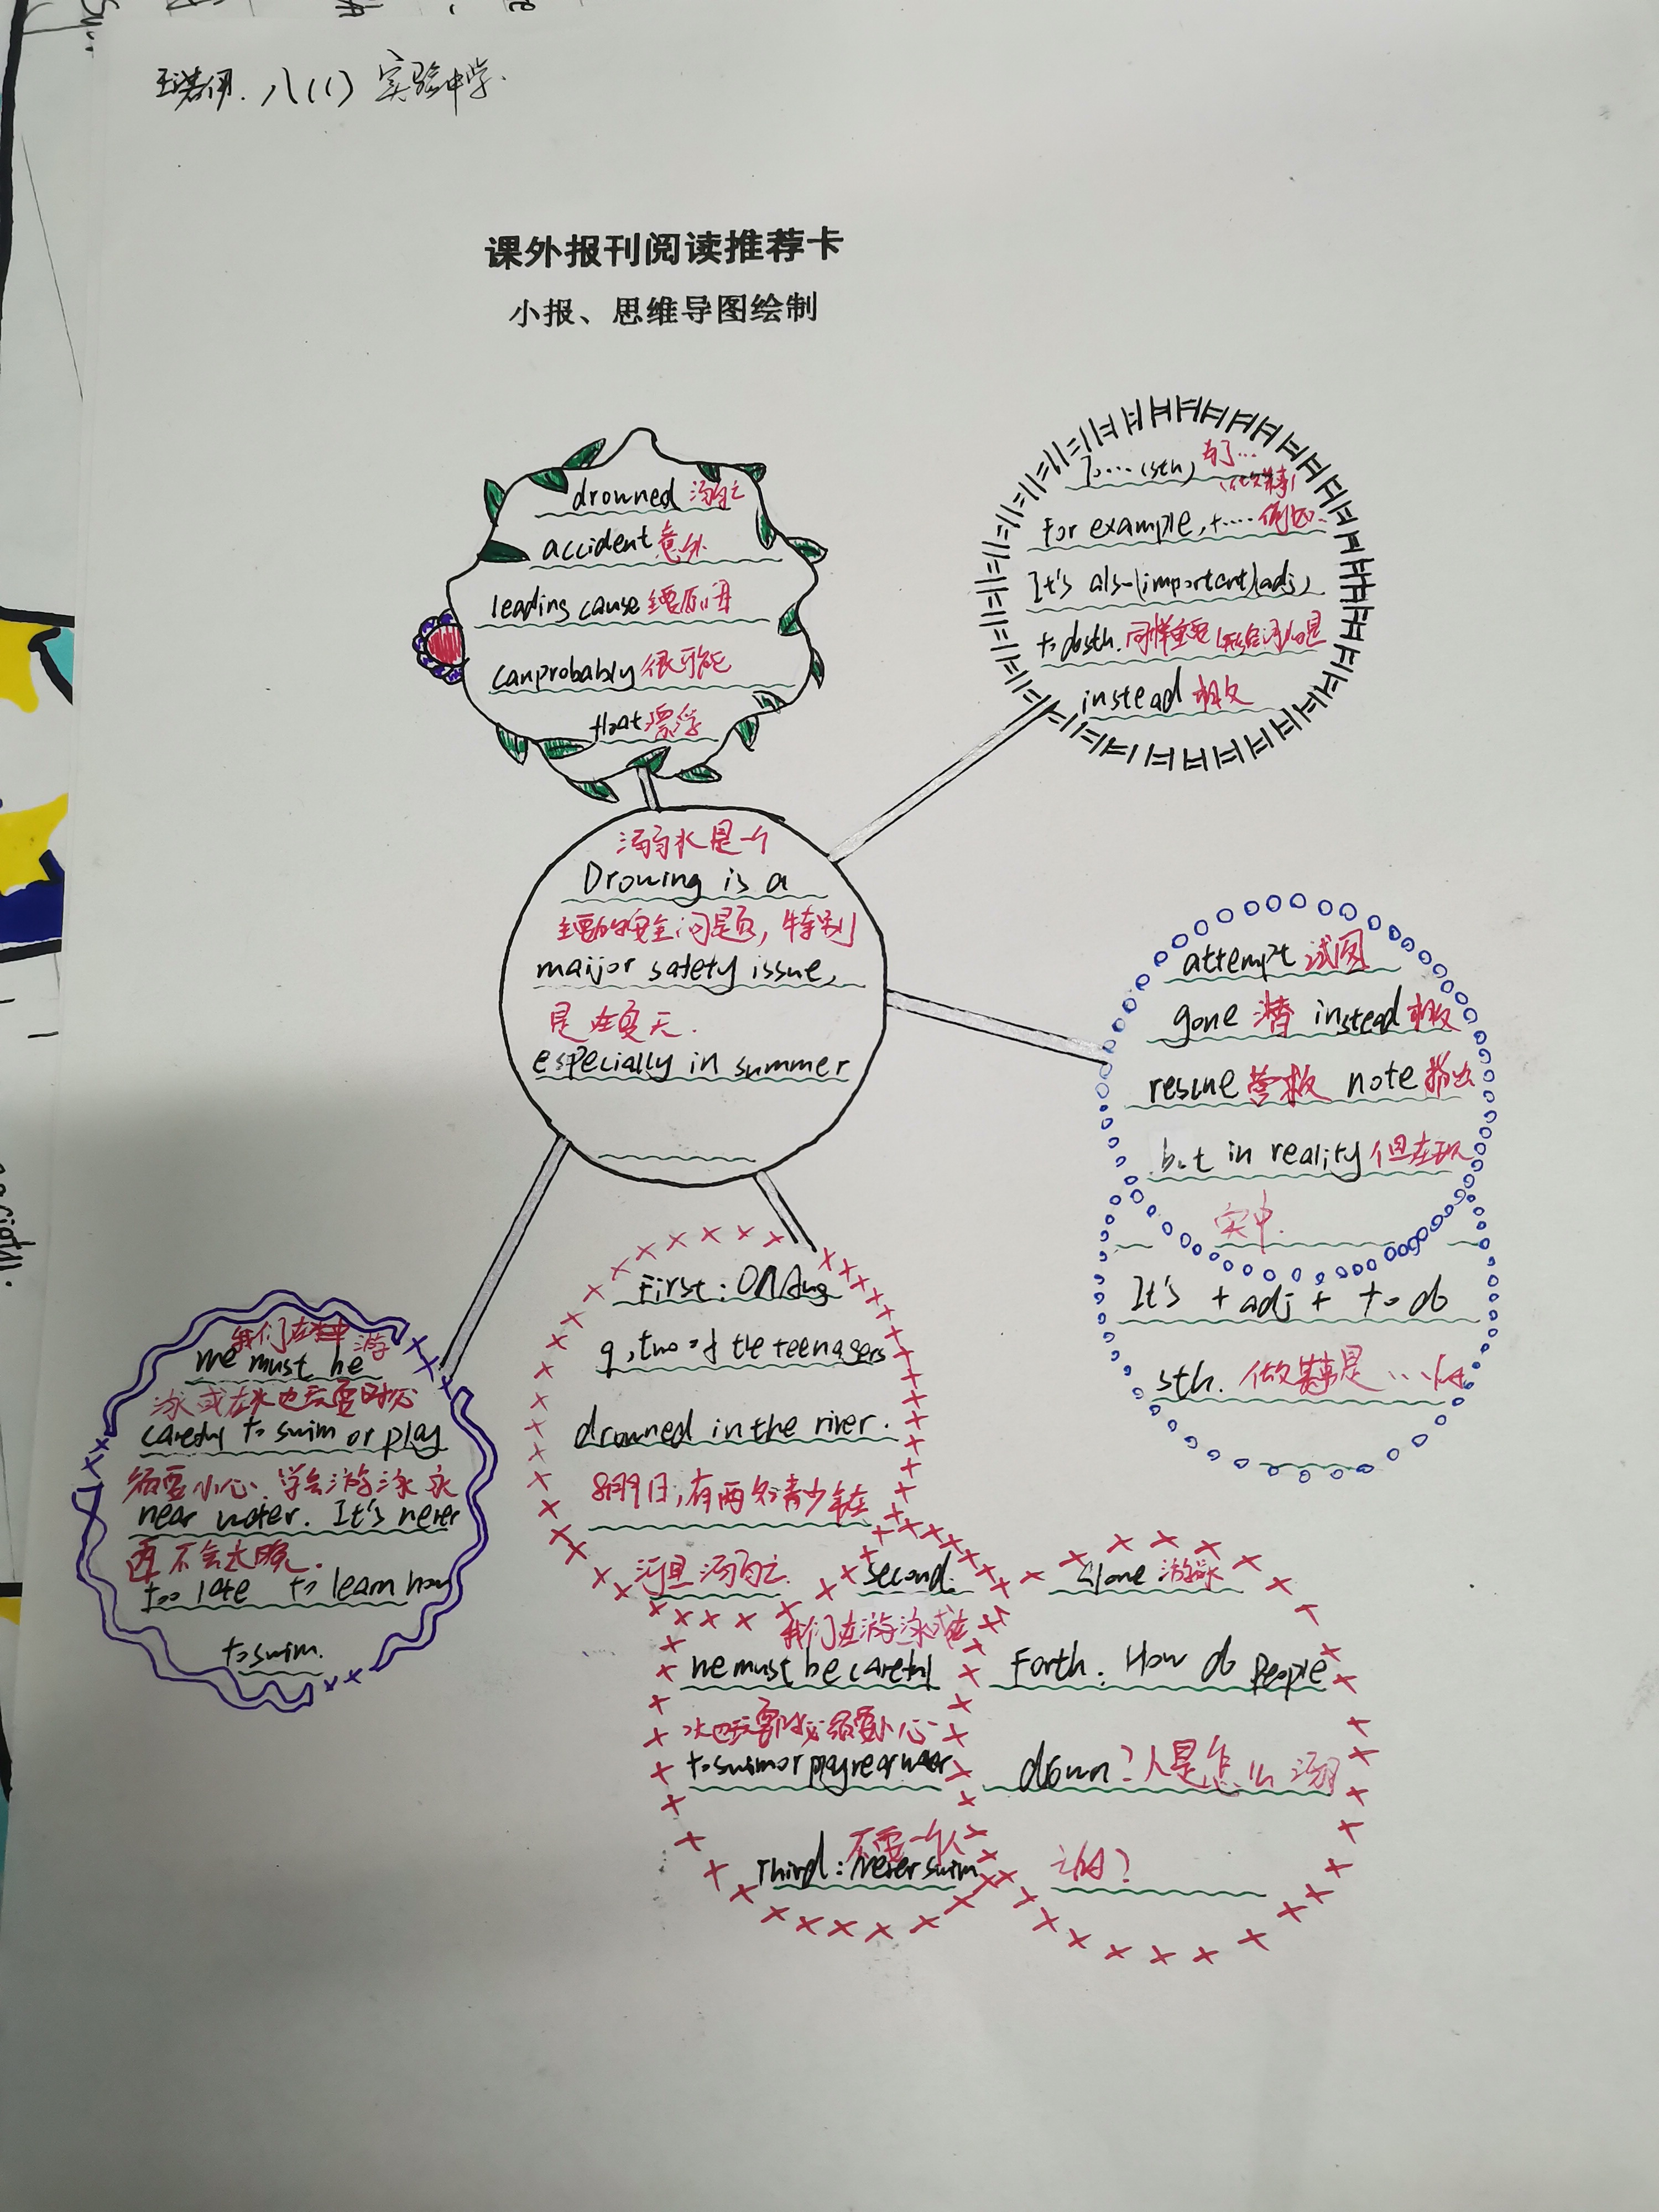 八(1) 实验中学.
课外报刊阅读推荐卡
小报、思维导图绘制
drowned 溺亡
accident 意外
leading cause 主要原因
canprobably 很可能
float 漂浮
To……(sth) 为了…
(做某事)
For example, +…… 例如…
It's als-(important)(adj)
to dosth. 同样重要(形容词)的是
instead 相反
溺水是一个
Drowing is a
主要的安全问题, 特别
maijor safety issue,
是在夏天.
especially in summer
attempt 试图
gone instead 相反
rescue 营救 note 指出
but in reality 但在现
实中.
It's + adj + to do
sth. 做某事是…
我们在水中游
me must be
泳或在水边玩耍时必
careful to swim or play
须要小心. 学会游泳永
near water. It's never
再不会太晚.
too late to learn how
to swim.
First: ON Aug
9, two of the teenagers
drowned in the river.
8月9日, 有两名青少年在
河里溺亡.
second.
我们在游泳或在
we must be careful
水边玩耍时必须要小心
to swim or play near water
不要一个人
Third: Never swim
alone 游泳
Forth. How do People
down? 人是怎么溺
亡的?